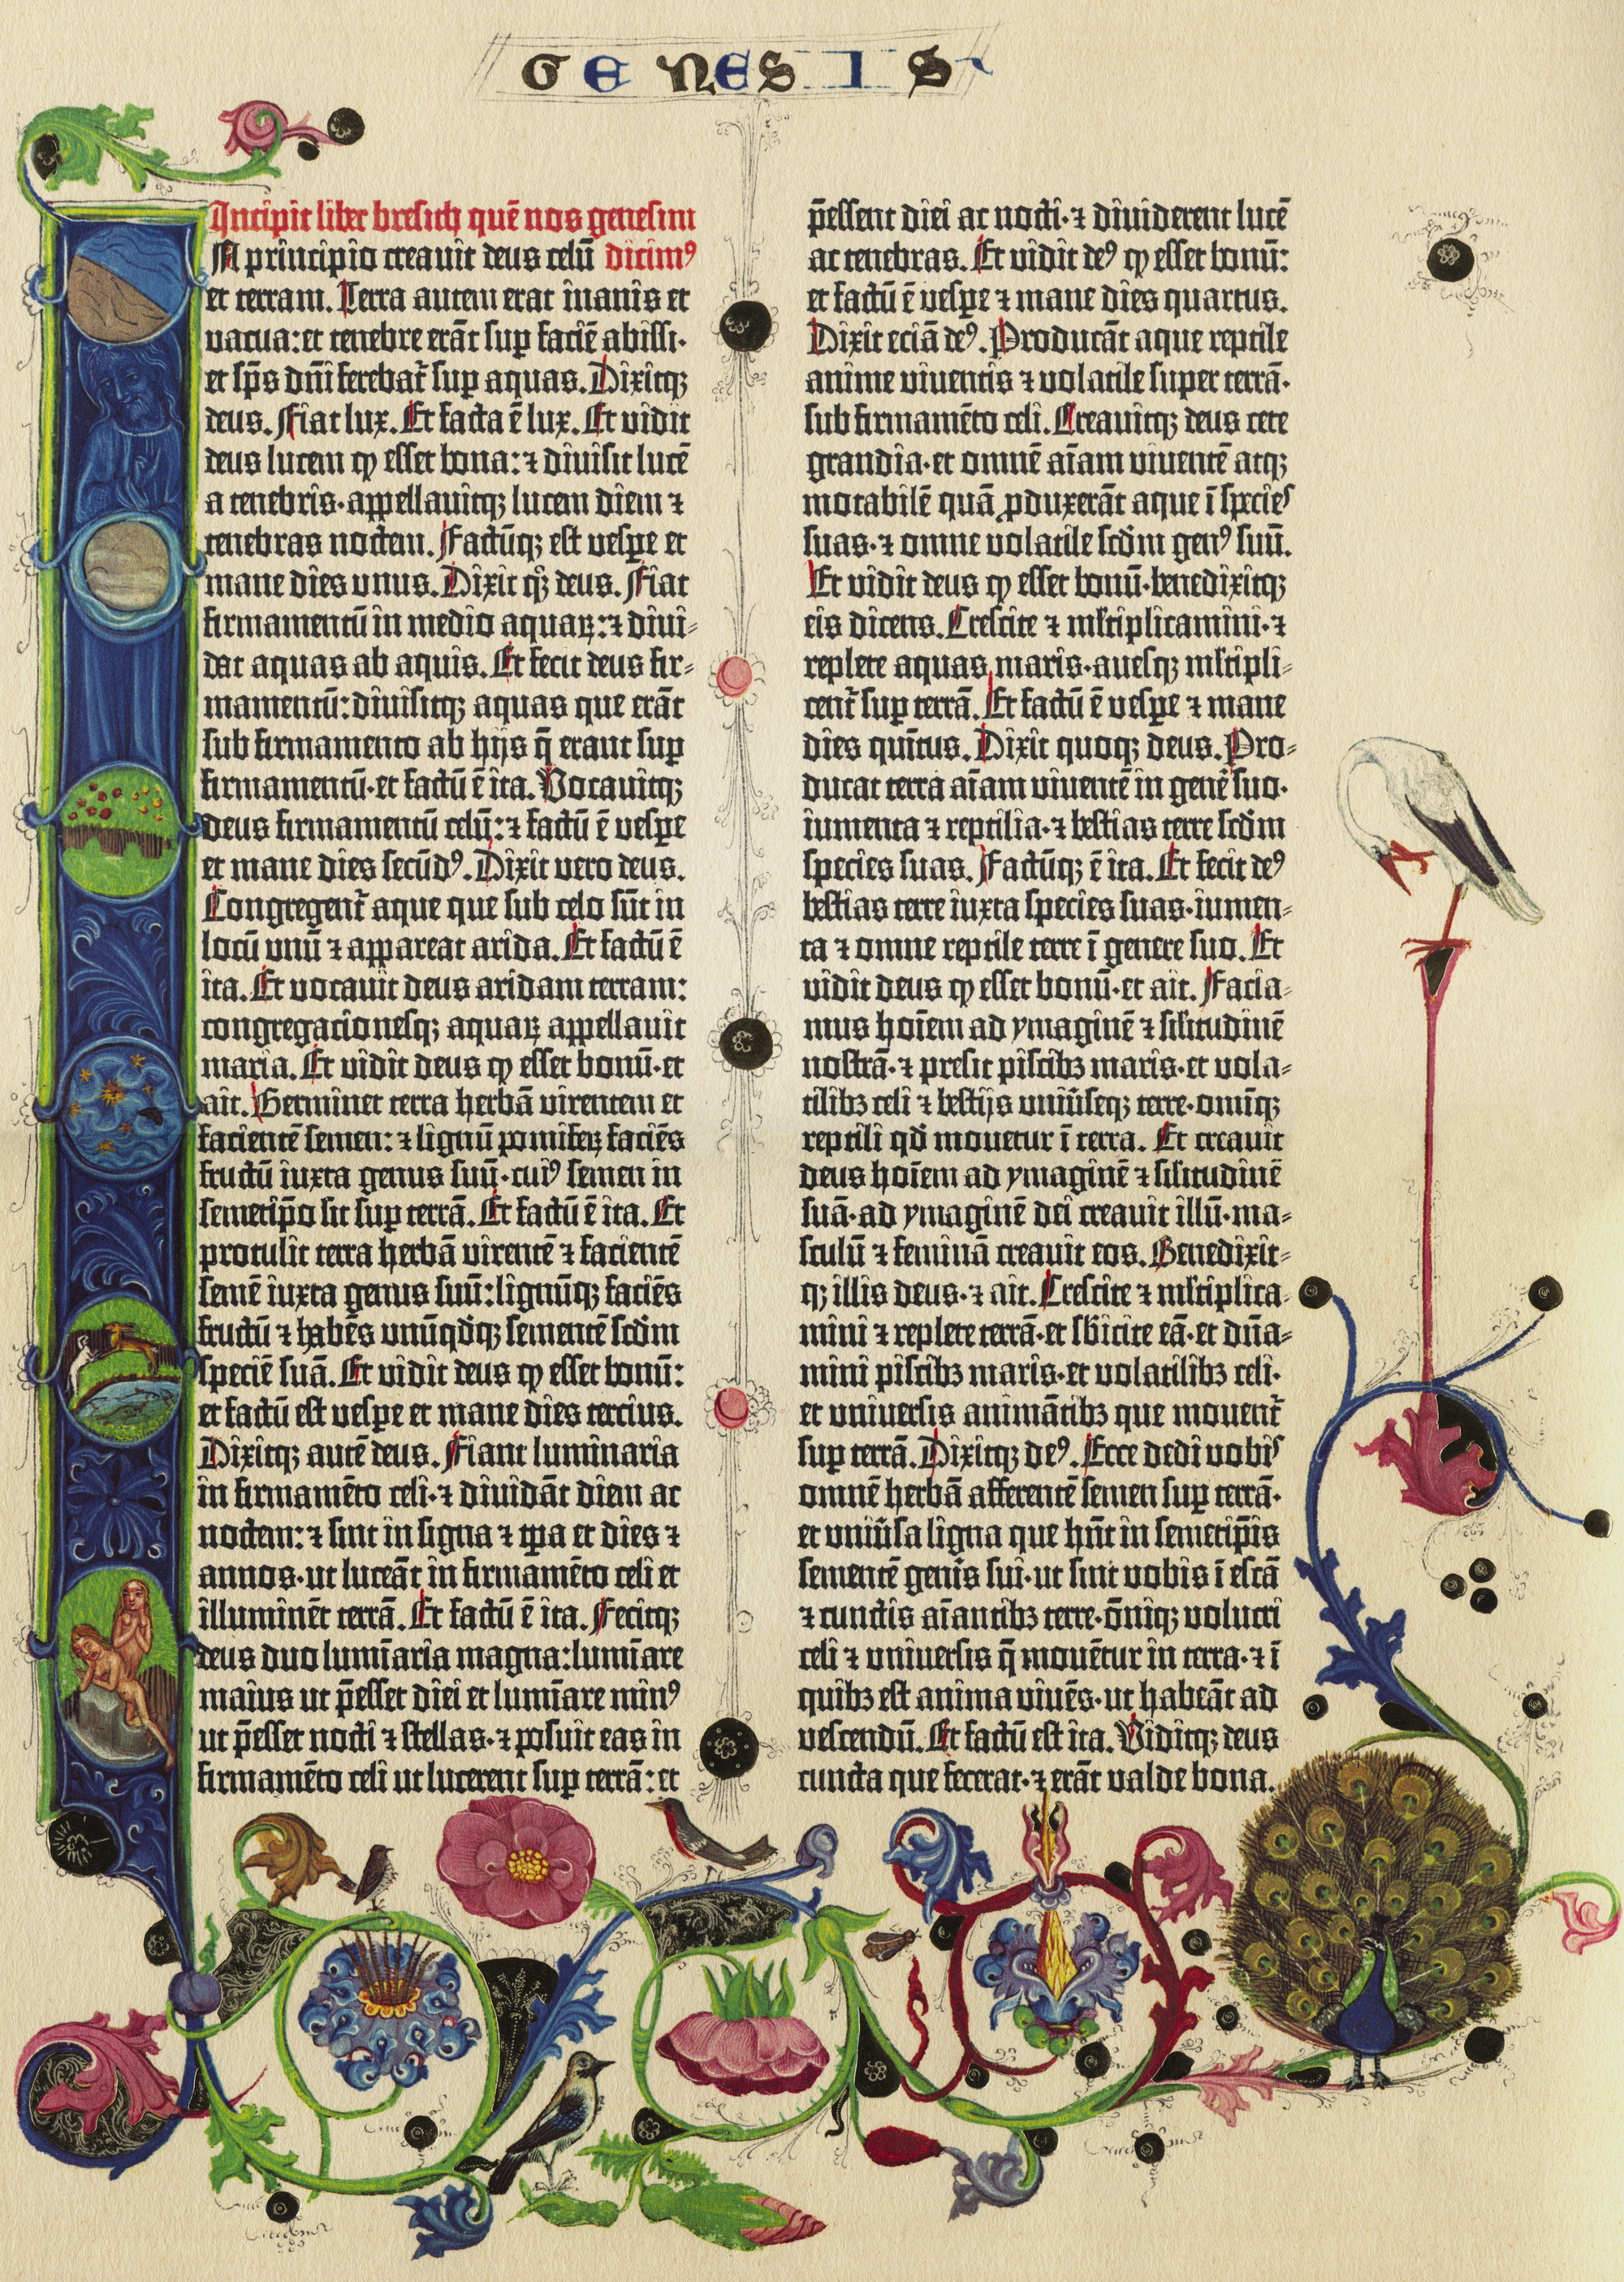 GENESIS
Incipit liber bresith quē nos genesim
In principio creavit deus celū dicimꝰ
et terram. Terra autem erat inanis et
vacua: et tenebre erāt sup faciē abissi·
et sp̄s dn̄i ferebat᷑ sup aquas. Dixitqꝫ
deus. Fiat lux. Et facta ē lux. Et vidit
deus lucem ꝙ esset bona: ⁊ divisit lucē
a tenebris·appellavitqꝫ lucem diem ⁊
tenebras noctem. Factūqꝫ est vespe et
mane dies unus. Dixit qͦꝫ deus. Fiat
firmamentū in medio aquaꝝ: ⁊ divi⸗
dat aquas ab aquis. Et fecit deus fir⸗
mamentū: divisitqꝫ aquas que erāt
sub firmamento ab hijs q̄ erant sup
firmamentū·et factū ē ita. Vocavitqꝫ
deus firmamentū celū: ⁊ factū ē vespe
et mane dies secūdꝰ. Dixit vero deus.
Congregent᷑ aque que sub celo sūt in
locū unū ⁊ appareat arida. Et factū ē
ita. Et vocavit deus aridam terram:
congregacionesqꝫ aquaꝝ appellavit
maria. Et vidit deus ꝙ esset bonū·et
ait. Germinet terra herbā virentem et
facientē semen: ⁊ lignū pomifeꝝ faciēs
fructū iuxta genus suū·cuiꝰ semen in
semetip̄o sit sup terrā. Et factū ē ita. Et
protulit terra herbā virentē ⁊ facientē
semē iuxta genus suū: lignūqꝫ faciēs
fructū ⁊ habēs unūqdqꝫ sementē scd̄m
speciē suā. Et vidit deus ꝙ esset bonū:
et factū est vespe et mane dies tercius.
Dixitqꝫ autē deus. Fiant luminaria
in firmamēto celi·⁊ dividāt diem ac
noctem: ⁊ sint in signa ⁊ tp̄a et dies ⁊
annos·ut luceāt in firmamēto celi et
illuminēt terrā. Et factū ē ita. Fecitqꝫ
deus duo lumīaria magna: lumīare
maius ut p̄esset diei et lumīare minꝰ
ut p̄esset nocti ⁊ stellas·⁊ posuit eas in
firmamēto celi ut lucerent sup terrā: et
p̄essent diei ac nocti·⁊ dividerent lucē
ac tenebras. Et vidit deꝰ ꝙ esset bonū:
et factū ē vespe ⁊ mane dies quartus.
Dixit eciā deꝰ. Producāt aque reptile
anime viventis ⁊ volatile super terrā·
sub firmamēto celi. Creavitqꝫ deus cete
grandia·et omnē aīam viventē atqꝫ
motabilē quā ꝓduxerāt aque ī species
suas·⁊ omne volatile scd̄m genꝰ suū.
Et vidit deus ꝙ esset bonū·benedixitqꝫ
eis dicens. Crescite ⁊ ml̄tiplicamini·⁊
replete aquas maris·avesqꝫ ml̄tipli⸗
cent᷑ sup terrā. Et factū ē vespe ⁊ mane
dies quītus. Dixit quoqꝫ deus. Pro⸗
ducat terra aīam viventē in genē suo·
iumenta ⁊ reptilia·⁊ bestias terre scd̄m
species suas. Factūqꝫ ē ita. Et fecit deꝰ
bestias terre iuxta species suas·iumen⸗
ta ⁊ omne reptile terre ī genere suo. Et
vidit deus ꝙ esset bonū·et ait. Facia⸗
mus hoīem ad ymaginē ⁊ sil̄itudinē
nostrā·⁊ presit piscibꝫ maris·et vola⸗
tilibꝫ celi ⁊ bestijs univ̄seqꝫ terre·omīqꝫ
reptili qd̄ movetur ī terra. Et creavit
deus hoīem ad ymaginē ⁊ sil̄itudinē
suā·ad ymaginē dei creavit illū·ma⸗
sculū ⁊ feminā creavit eos. Benedixit⸗
qꝫ illis deus·⁊ ait. Crescite ⁊ ml̄tiplica⸗
mini ⁊ replete terrā·et sb̄icite eā·et dn̄a⸗
mini piscibꝫ maris·et volatilibꝫ celi·
et universis animātibꝫ que movent᷑
sup terrā. Dixitqꝫ deꝰ. Ecce dedi vobis
omnē herbā afferentē semen sup terrā·
et univ̄sa ligna que hn̄t in semetip̄is
sementē genīs sui·ut sint vobis ī escā
⁊ cunctis aīantibꝫ terre·oīniqꝫ volucri
celi ⁊ universis q̄ movētur in terra·⁊ ī
quibꝫ est anima vivēs·ut habeāt ad
vescendū. Et factū est ita. Viditqꝫ deus
cuncta que fecerat·⁊ erāt valde bona.